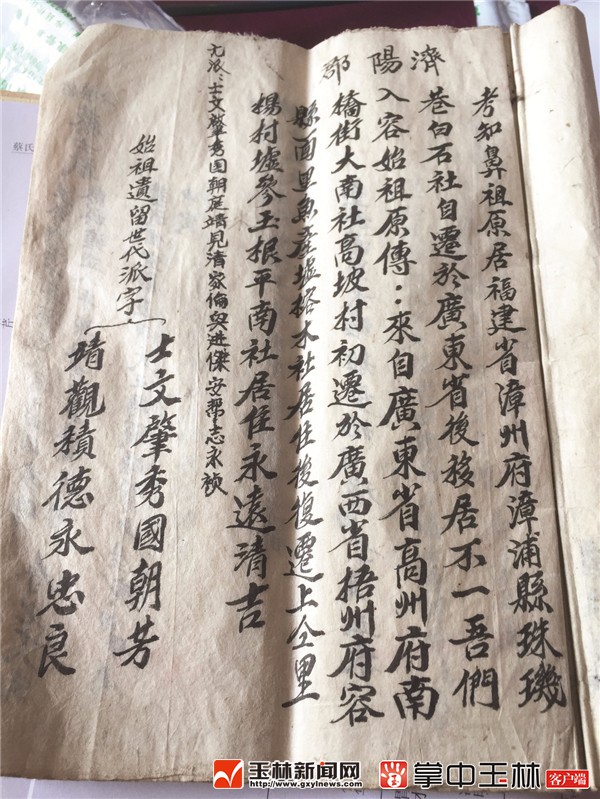 濟陽郡
考知鼻祖原居福建省漳州府漳浦縣珠璣
巷白石社自遷於廣東省後移居不一吾們
入容始祖原傳：來自廣東省高州府南
橋街大南社高坡村初遷於廣西省梧州府容
縣西里魚產墟榕木社居住後復遷上全里
楊村墟參玉根平南社居住永遠清吉
尤派：士文肇秀国朝庭靖見清家倫與進傑安帮志永祯
始祖遺留世代派字
士文肇秀國朝芳
靖觀積德永忠良
蔡氏
玉林新闻网
www.gxylnews.com
掌中玉林
客户端